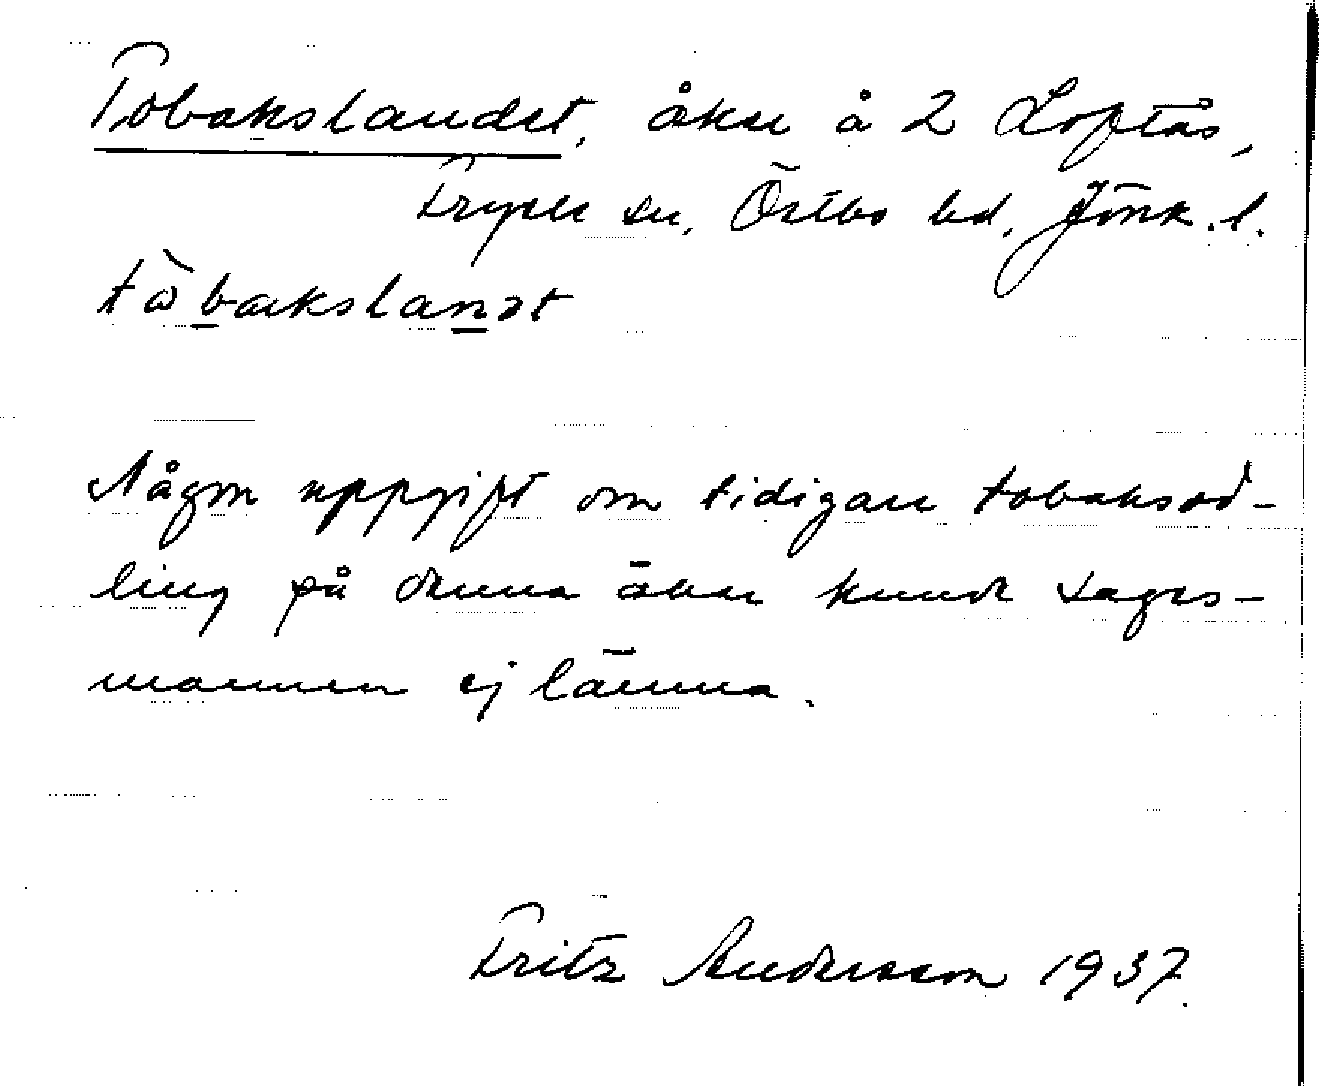 Tobakslandet, åker å 2 Loftås,
Fryele sn, Östbo hd, Jönk. l.
tòbakslanət
Någon uppgift om tidigare tobaksod-
ling på denna åker kunde sages-
mannen ej lämna.
Fritz Andersson 1937.